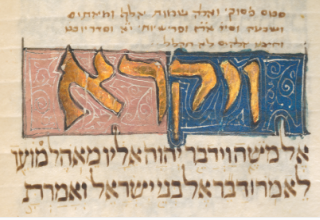 סכום פסוקי ואלה שמות אלף ומאתים
ותשעה ופרשיות יא
ויקרא
אל משה וידבר יהוה אליו מאהל מועד
לאמר דבר אל בני ישראל ואמרת